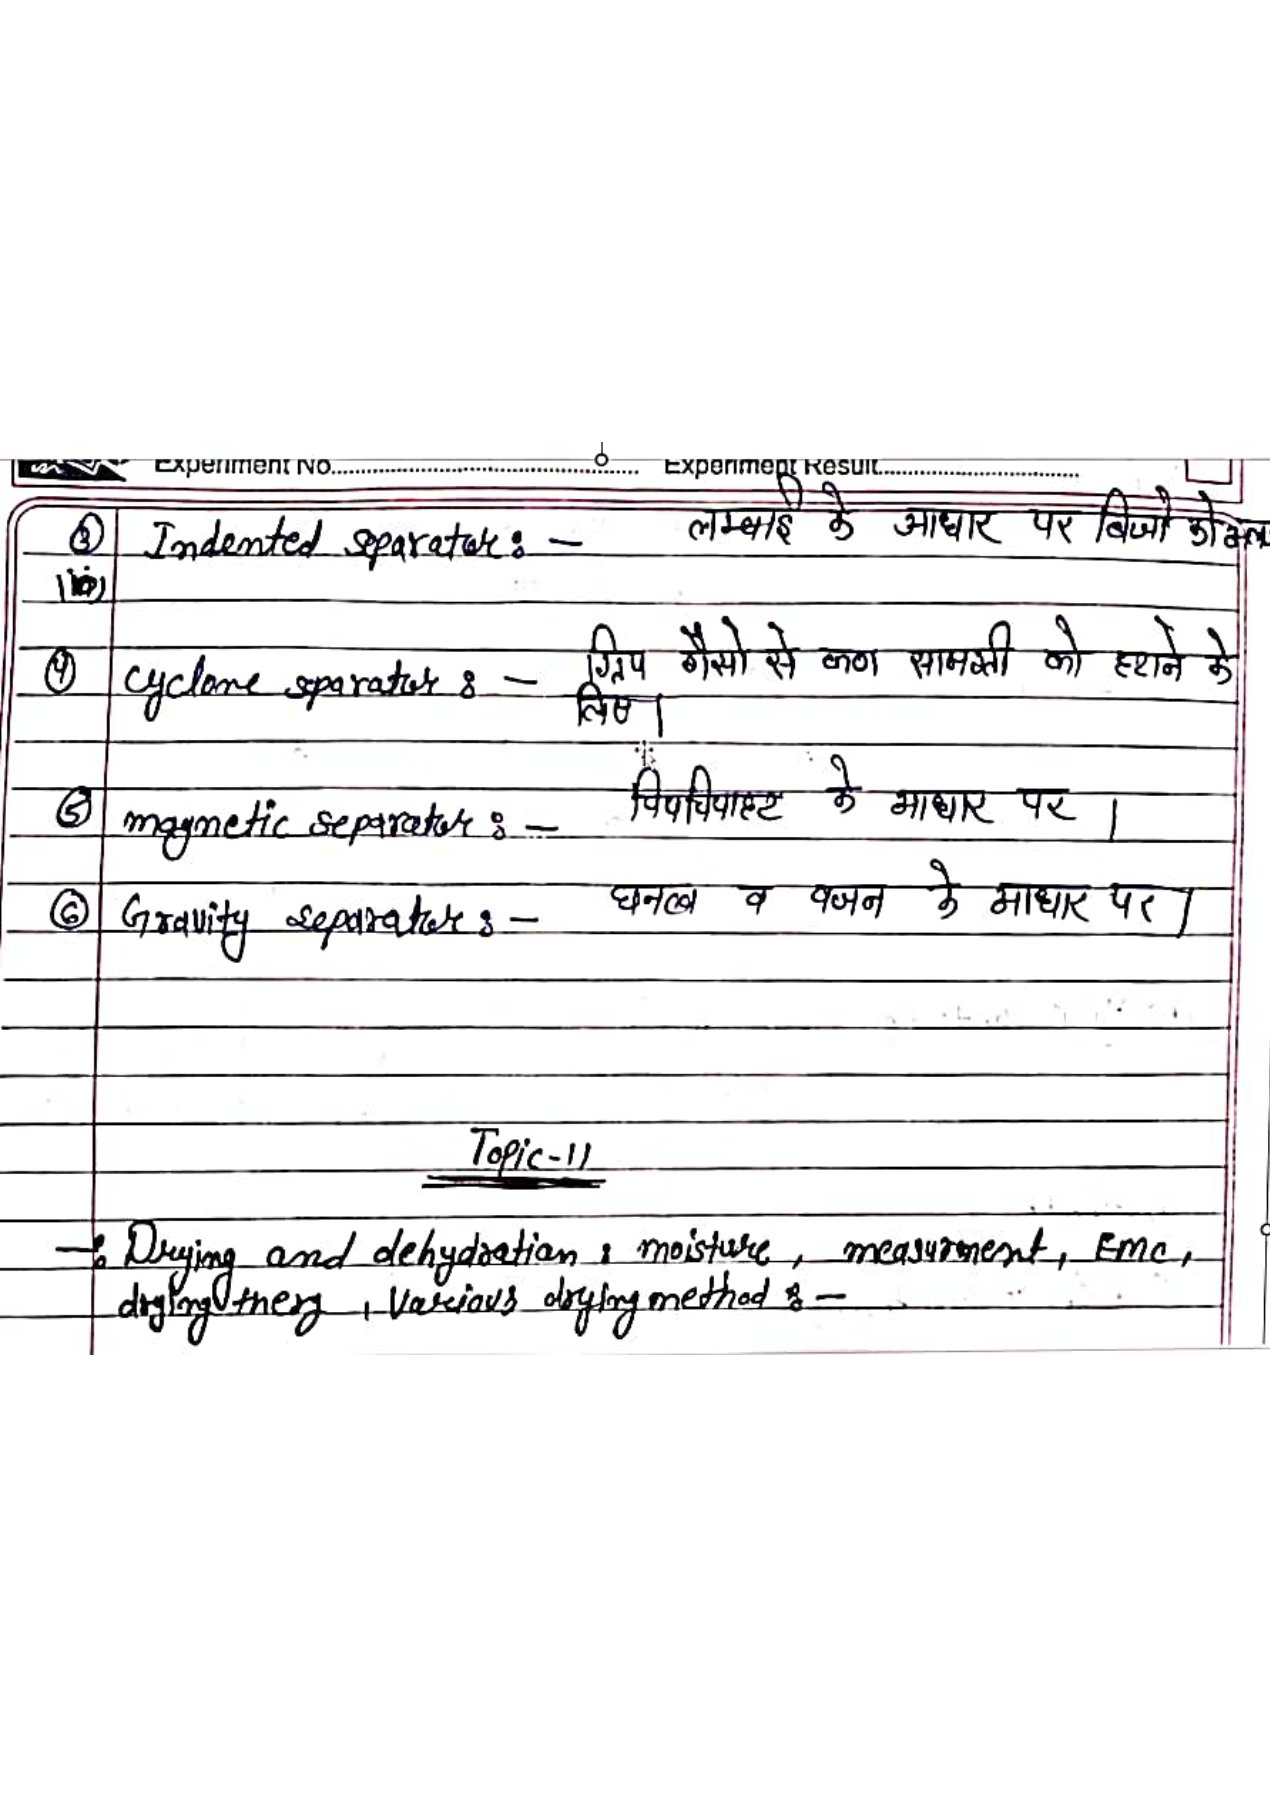 Experiment No.......... Experiment Result..........
③ Indented separator : — लम्बाई के आधार पर बिजो को
④ cyclone separator : — गैसो से कण सामग्री को हटाने के
लिए।
⑤ magnetic separator : — चिपचिपाहट के आधार पर ।
⑥ Gravity separator : — घनत्व व वजन के आधार पर ।
Topic-11
—: Drying and dehydration : moisture, measurment, EMC,
drying , various drying method : —